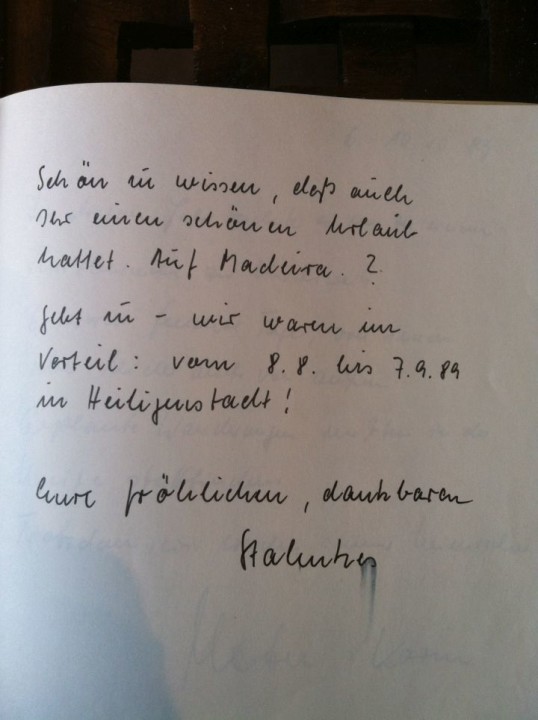 Schön zu wissen, daß auch
Ihr einen schönen Urlaub
hattet. Auf Madeira. ?
Gebt zu - wir waren im
Vorteil: vom 8.8. bis 7.9.89
in Heiligenstadt!
Eure fröhlichen, dankbaren